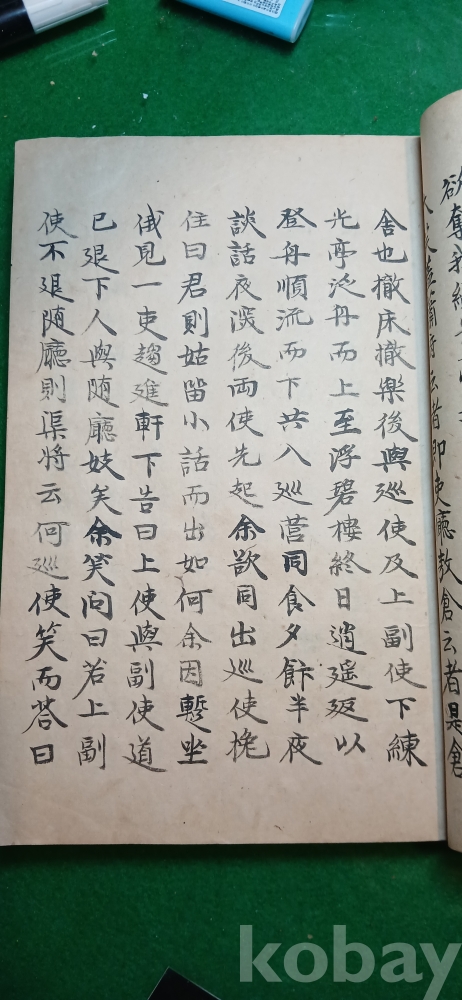 舎也撤床撤樂後與巡使及上副使下練
光亭泛舟而上至浮碧樓終日逍遥返以
登舟順流而下共入巡营同食夕餠半夜
談話夜深後両使先起余欲同出巡使挽
住曰君則姑畄小話而出如何余因蹔坐
俄見一吏趨進軒下告曰上使與副使道
已退下人與随廳妓矣余笑问曰若上副
使不退随廳則渠將云何巡使笑而答曰
kobay